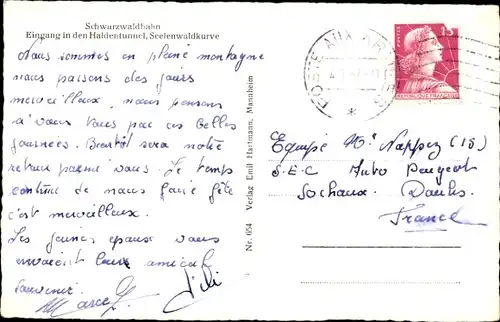 Schwarzwaldbahn
Eingang in den Haldentunnel, Seelenwaldkurve
Nous sommes en pleine montagne
nous passons des jours
merveilleux, nous pensons
à vous tous par ces belles
journées. Bientôt sera notre
retour parmi vous. Le temps
continue de nous faire fête
c'est merveilleux.
Les jeunes époux vous
envoient leur amical
souvenir.
Marcel
Nr. 654 Verlag Emil Hartmann, Mannheim
POSTE AUX ARMÉES
POSTES
15
REPUBLIQUE FRANÇAISE
Equipe Mr Nappez (IS)
S.E.C Auto Peugeot
Sochaux Doubs
France